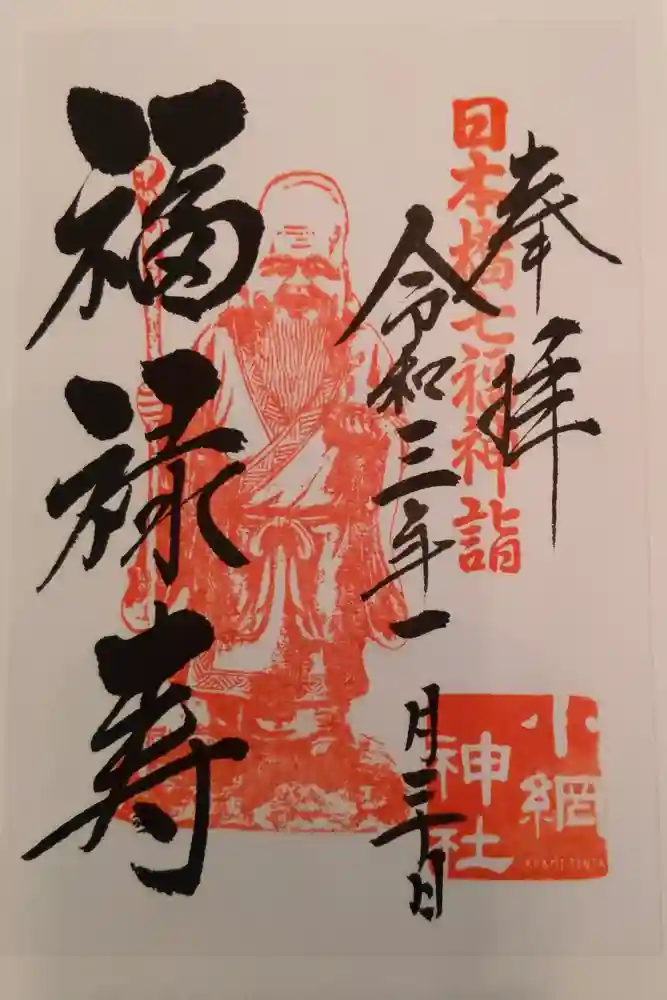 奉拝
日本橋七福神詣
令和三年一月三十日
福禄寿
小網
神社